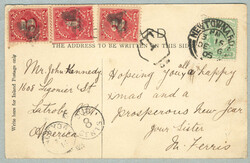 THE ADDRESS TO BE WRITTEN ON THIS
Write here for Inland Postage only
Mr John Kennedy
1608 Ligonier St
Latrobe
America
Hoping you a
happy Xmas
and a
prosperous New year
Your Sister
M Ferris